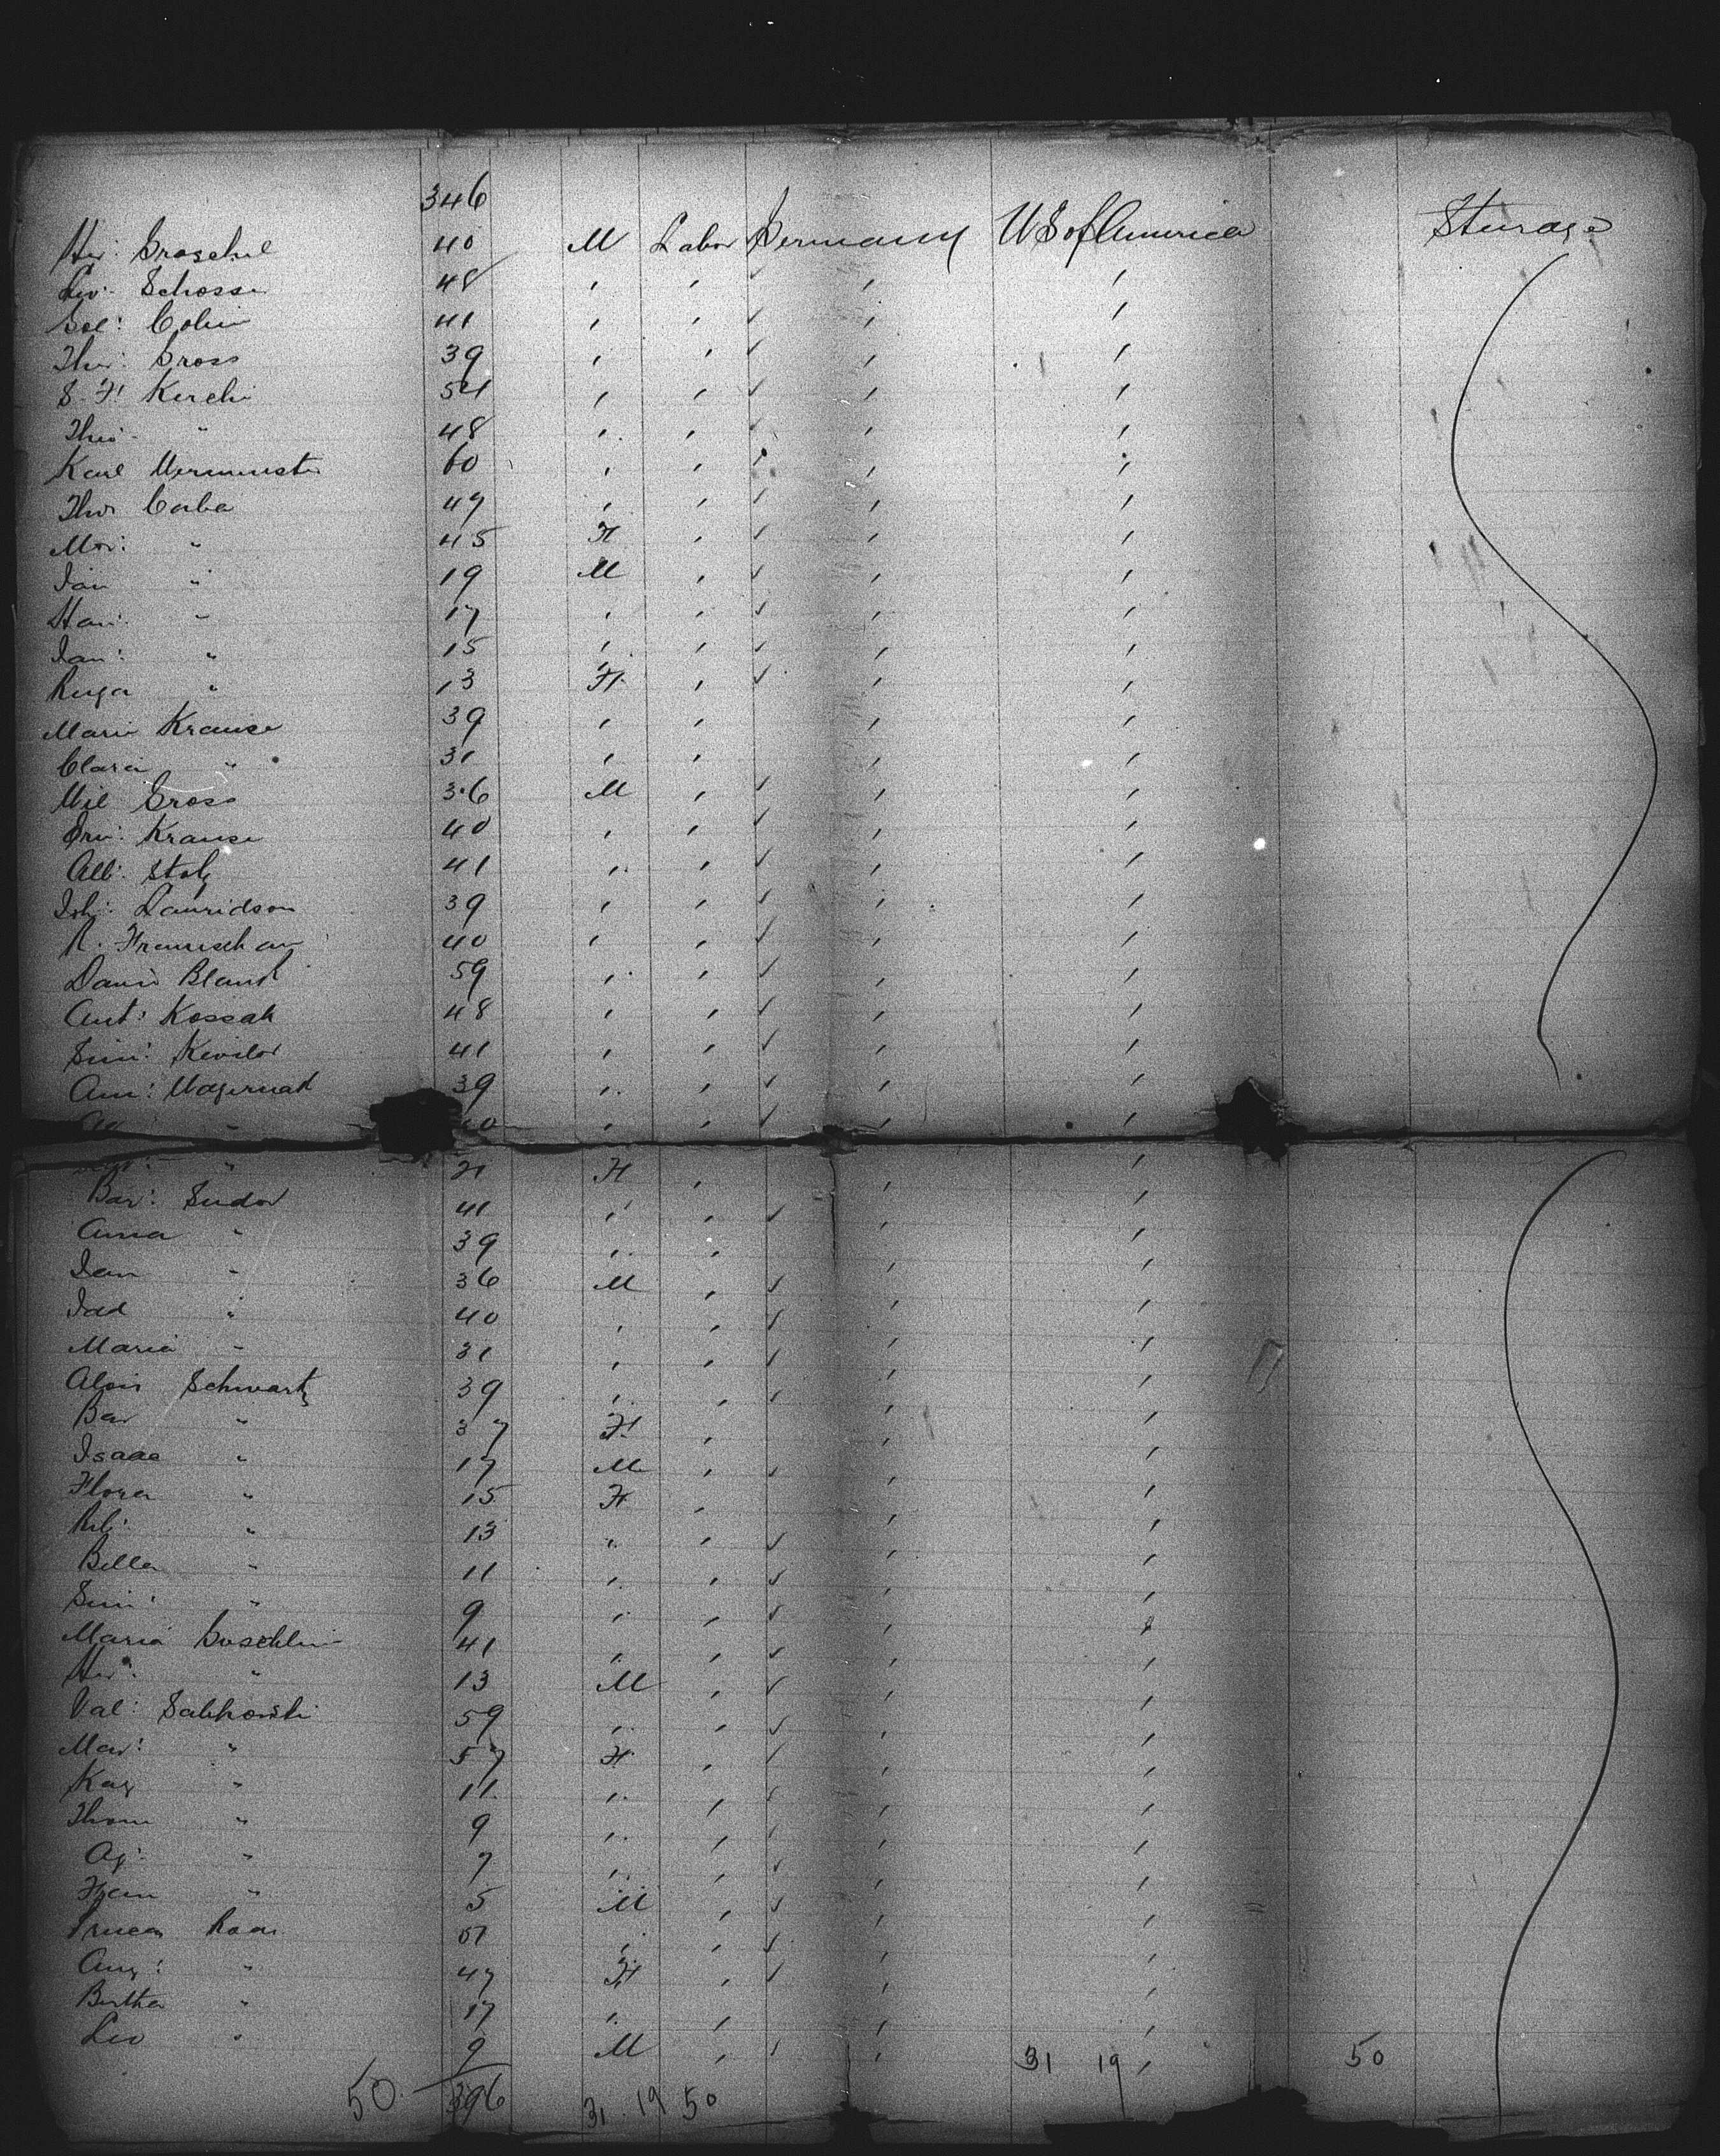 346
Her: Groschel 40 M Labor Germany U S of America Sturage
Leo: Schosse 48 , ,
Sol: Cohn 41 , ,
Thr: Gross 39 , ,
S. F. Kerchi 54 , ,
Theo " 48 , ,
Karl 60 , ,
Thos Corba 49 , ,
Mor: " 45 F ,
Jan " 19 M ,
Han: " 17 , ,
Jan: " 15 , ,
Ruga " 13 F ,
Marie Krause 39 , ,
Clara " 31 , ,
Wil Gross 36 M ,
Erw: Krause 40 , ,
Alb: Stolz 41 , ,
Joh: Dauridson 39 , ,
R. 40 , ,
David Blank 59 , ,
Ant: Kossak 48 , ,
Sim: Kevilor 41 , ,
Am: 39 , ,
" , ,
" 21 F ,
Bar: Sudor 41 , ,
Anna " 39 , ,
Jan " 36 M ,
Jad " 40 , ,
Maria " 31 , ,
Alois Schwartz 39 , ,
Bar " 37 F ,
Isaac " 17 M ,
Flora " 15 F ,
Reb: " 13 " ,
Bella " 11 , ,
Sim: " 9 , ,
Maria 41 , ,
Her: " 13 M ,
Val: 59 , ,
Mar: " 57 F ,
Kaz " 11 , ,
Thom " 9 , ,
Ag: " 7 , ,
" 5 M ,
, ,
Aug: " 47 F ,
Bertha " 17 , ,
Leo " 9 M , 31 19 50
50 396 31 19 50